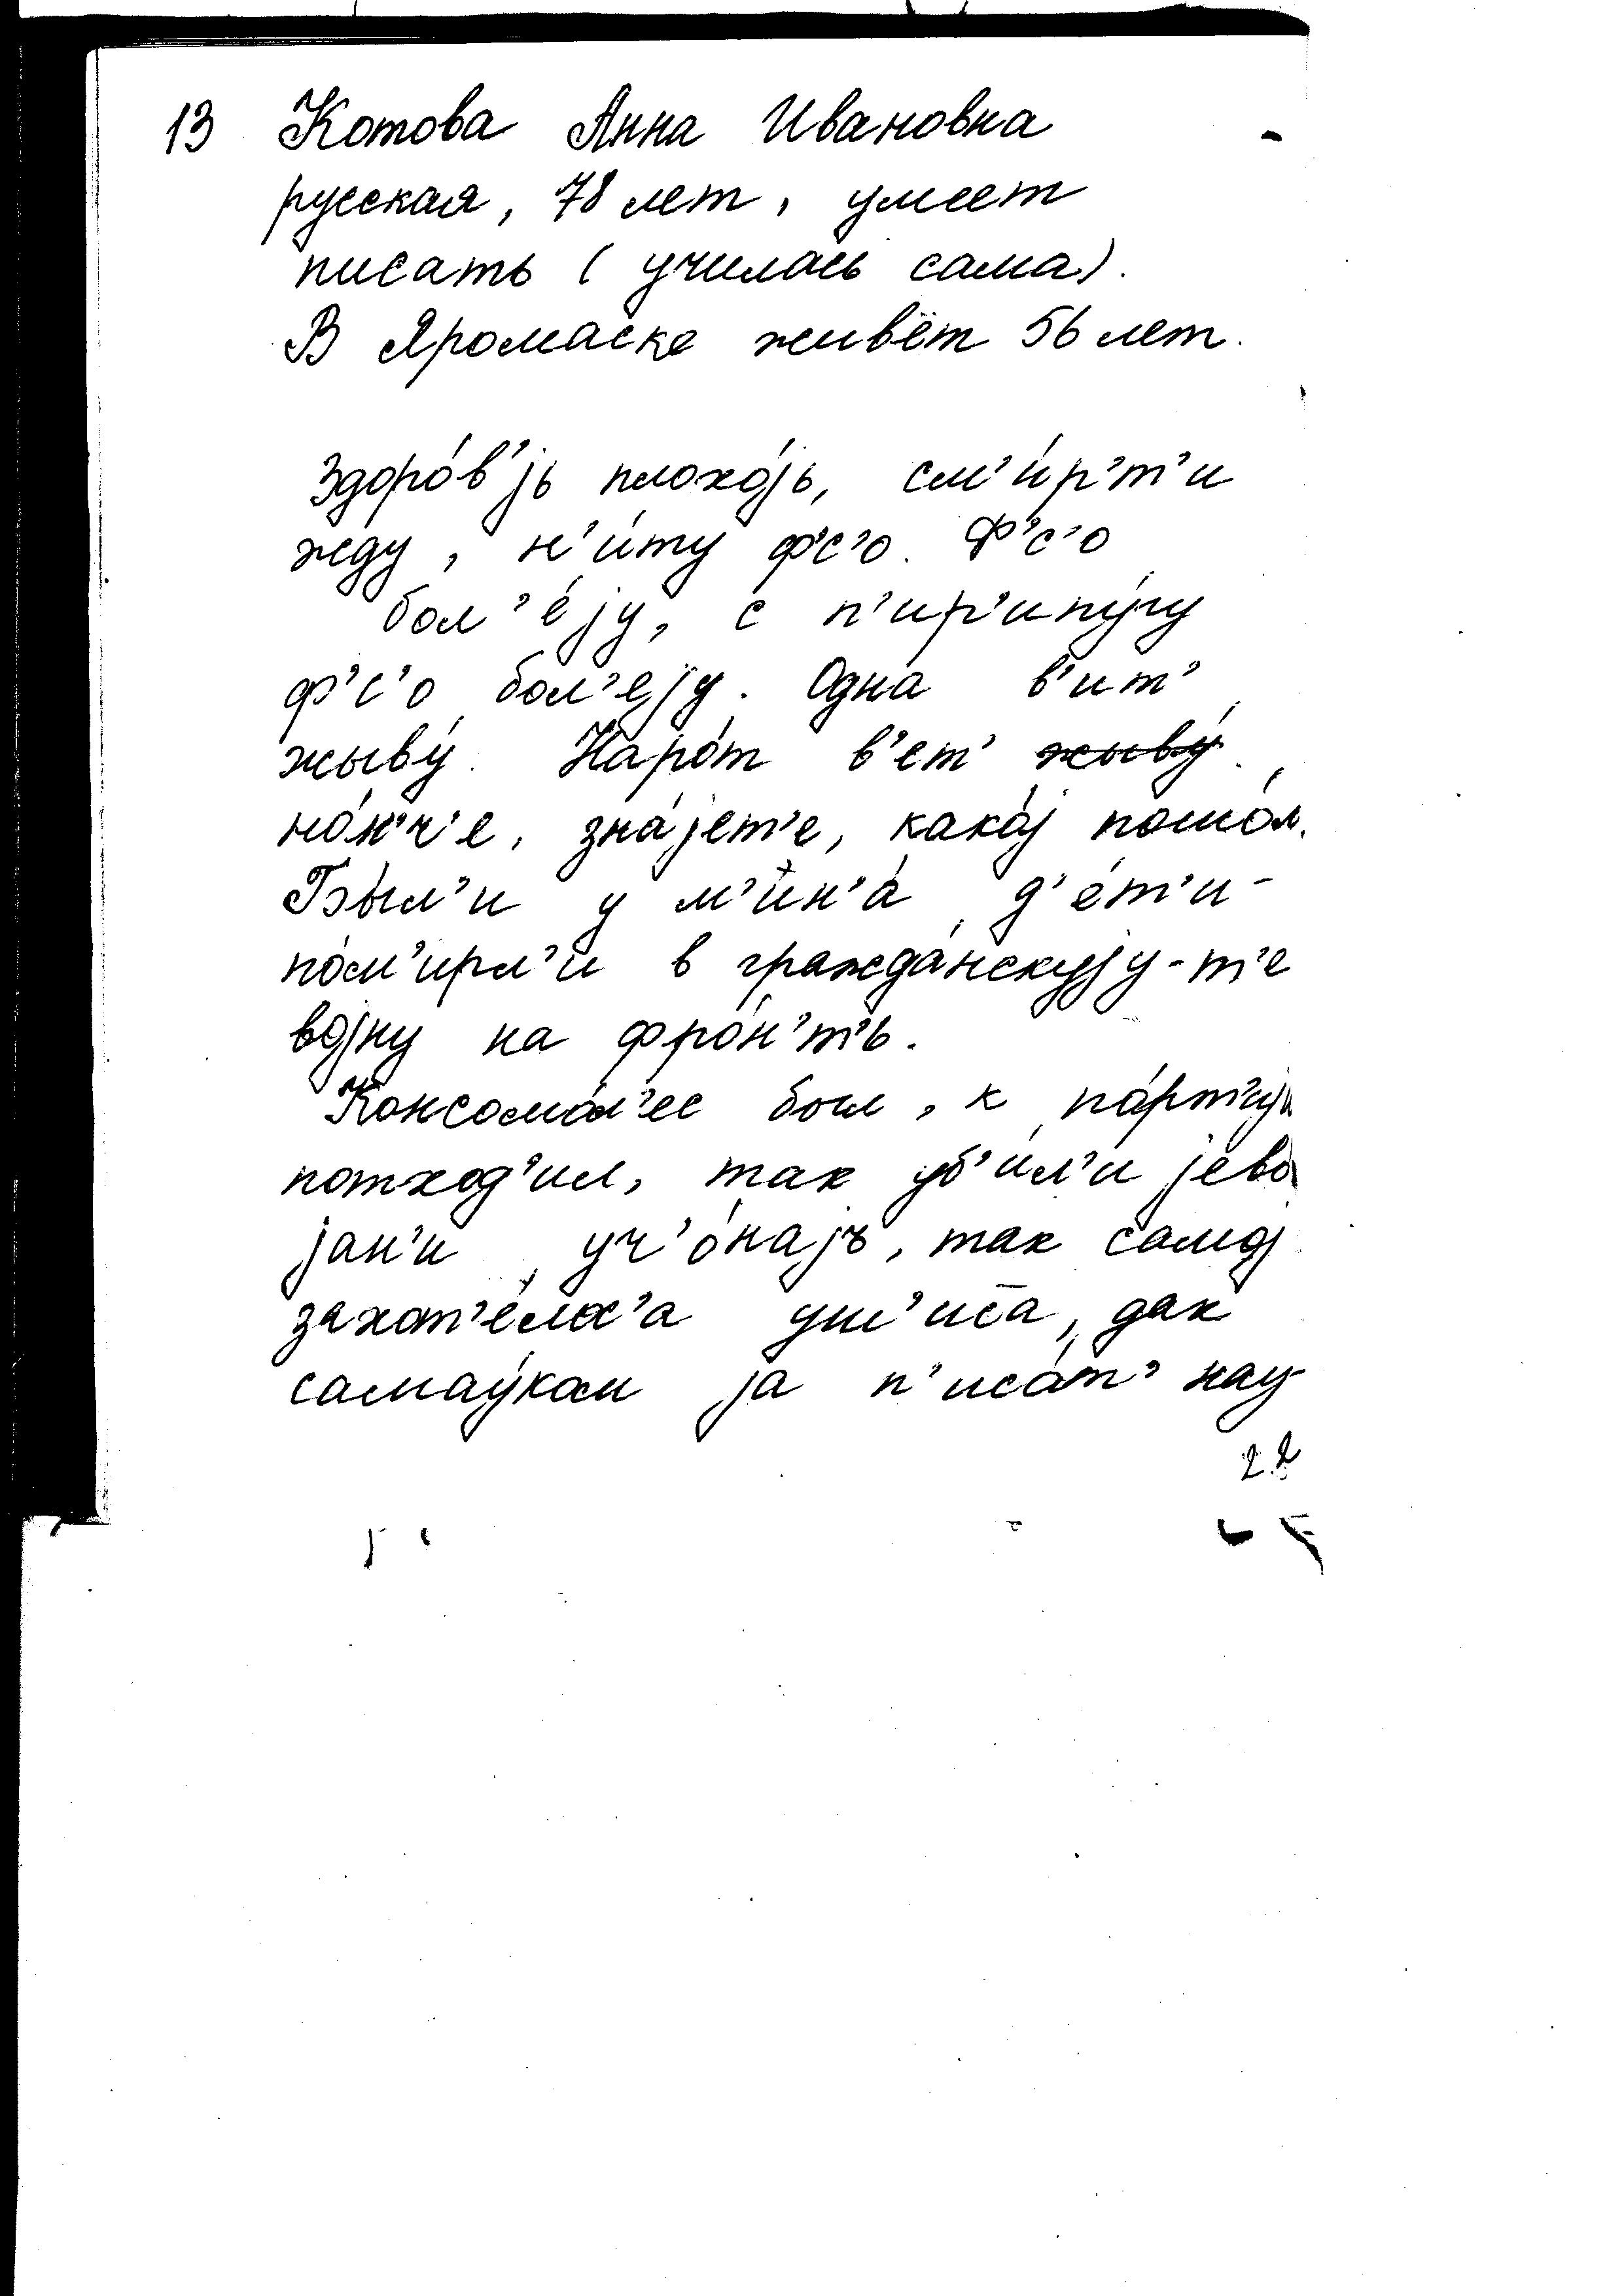 13 Котова Анна Ивановна
русская, 78 лет, умеет
писать (училась сама).
В Яромаске живёт 56 лет.
Здоро́в'јь плохо́јь, см'и́р'т'и
жду, н'и́ту ф'с'о. Ф'с'о
бол'е́ју, с п'ир'ипу́гу
ф'с'о бол'е́ју. Одна́ в'ит'
жыву́. Наро́т в'ет' ~~жыву́~~.
но́н'ч'е, зна́јет'е, како́ј пошо́л.
Бы́л'и у м'ин'а́ д'е́т'и -
по́м'ирл'и в гражда́нскују-т'е
војну на фро́н'т'ь.
Консомо́л'ес был, к па́рт'ији
потход'ил, так уб'и́л'и јево
јан'и уч'о́најъ, так само́ј
захот'е́лас'а
самау́кам ја п'иса́т' нау-
22